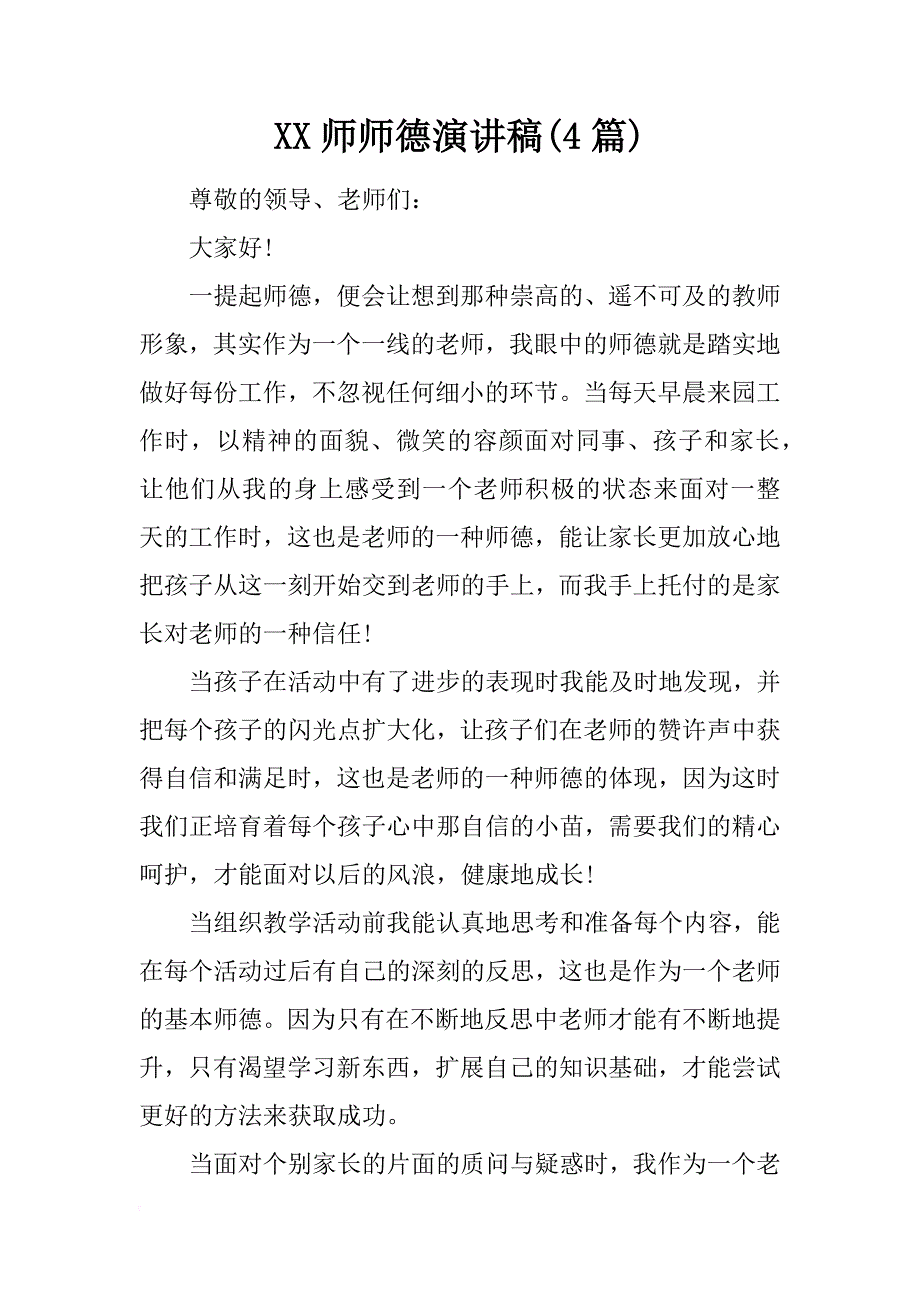 XX师师德演讲稿(4篇)
尊敬的领导、老师们：
大家好!
一提起师德，便会让想到那种崇高的、遥不可及的教师
形象，其实作为一个一线的老师，我眼中的师德就是踏实地
做好每份工作，不忽视任何细小的环节。当每天早晨来园工
作时，以精神的面貌、微笑的容颜面对同事、孩子和家长，
让他们从我的身上感受到一个老师积极的状态来面对一整
天的工作时，这也是老师的一种师德，能让家长更加放心地
把孩子从这一刻开始交到老师的手上，而我手上托付的是家
长对老师的一种信任!
当孩子在活动中有了进步的表现时我能及时地发现，并
把每个孩子的闪光点扩大化，让孩子们在老师的赞许声中获
得自信和满足时，这也是老师的一种师德的体现，因为这时
我们正培育着每个孩子心中那自信的小苗，需要我们的精心
呵护，才能面对以后的风浪，健康地成长!
当组织教学活动前我能认真地思考和准备每个内容，能
在每个活动过后有自己的深刻的反思，这也是作为一个老师
的基本师德。因为只有在不断地反思中老师才能有不断地提
升，只有渴望学习新东西，扩展自己的知识基础，才能尝试
更好的方法来获取成功。
当面对个别家长的片面的质问与疑惑时，我作为一个老